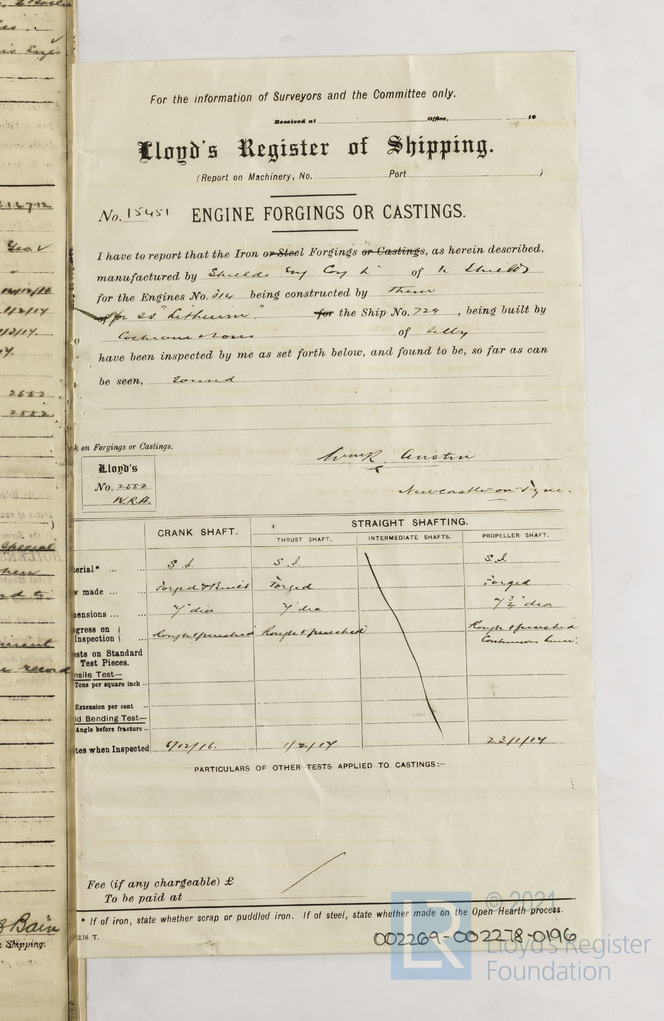 For the information of Surveyors and the Committee only.
Received at Office, 19
Lloyd's Register of Shipping.
(Report on Machinery, No. Port )
No. 15451 ENGINE FORGINGS OR CASTINGS.
I have to report that the Iron or Steel Forgings or Castings, as herein described,
manufactured by Shields Eng Coy Ld of N Shields
for the Engines No. 314 being constructed by them
for SS "Lithium" for the Ship No. 729, being built by
Cochrane & Sons of Selby
have been inspected by me as set forth below, and found to be, so far as can
be seen, sound
k on Forgings or Castings.
Lloyd's
No. 2552
W.R.A.
Austin
Newcastle-on-Tyne.
CRANK SHAFT. STRAIGHT SHAFTING.
THRUST SHAFT. INTERMEDIATE SHAFTS. PROPELLER SHAFT.
terial* ... S. I. S. I. S. I.
w made ... Forged & Built Forged Forged
ensions ... 7" dia 7" dia 7 3/4" dia
gress on Inspection Rough & finished Rough & finished Rough & finished Continuous liner.
sts on Standard
Test Pieces.
nsile Test—
Tons per square inch ...
Extension per cent ...
ld Bending Test—
Angle before fracture ...
tes when Inspected 6/12/16. 1/2/17 23/1/17
PARTICULARS OF OTHER TESTS APPLIED TO CASTINGS:—
Fee (if any chargeable) £
To be paid at
* If of iron, state whether scrap or puddled iron. If of steel, state whether made on the Open Hearth process.
2.16. T.
002269-002278-0196
© 2021
LR
Lloyd's Register
Foundation
2552
2552
Bain
Shipping.